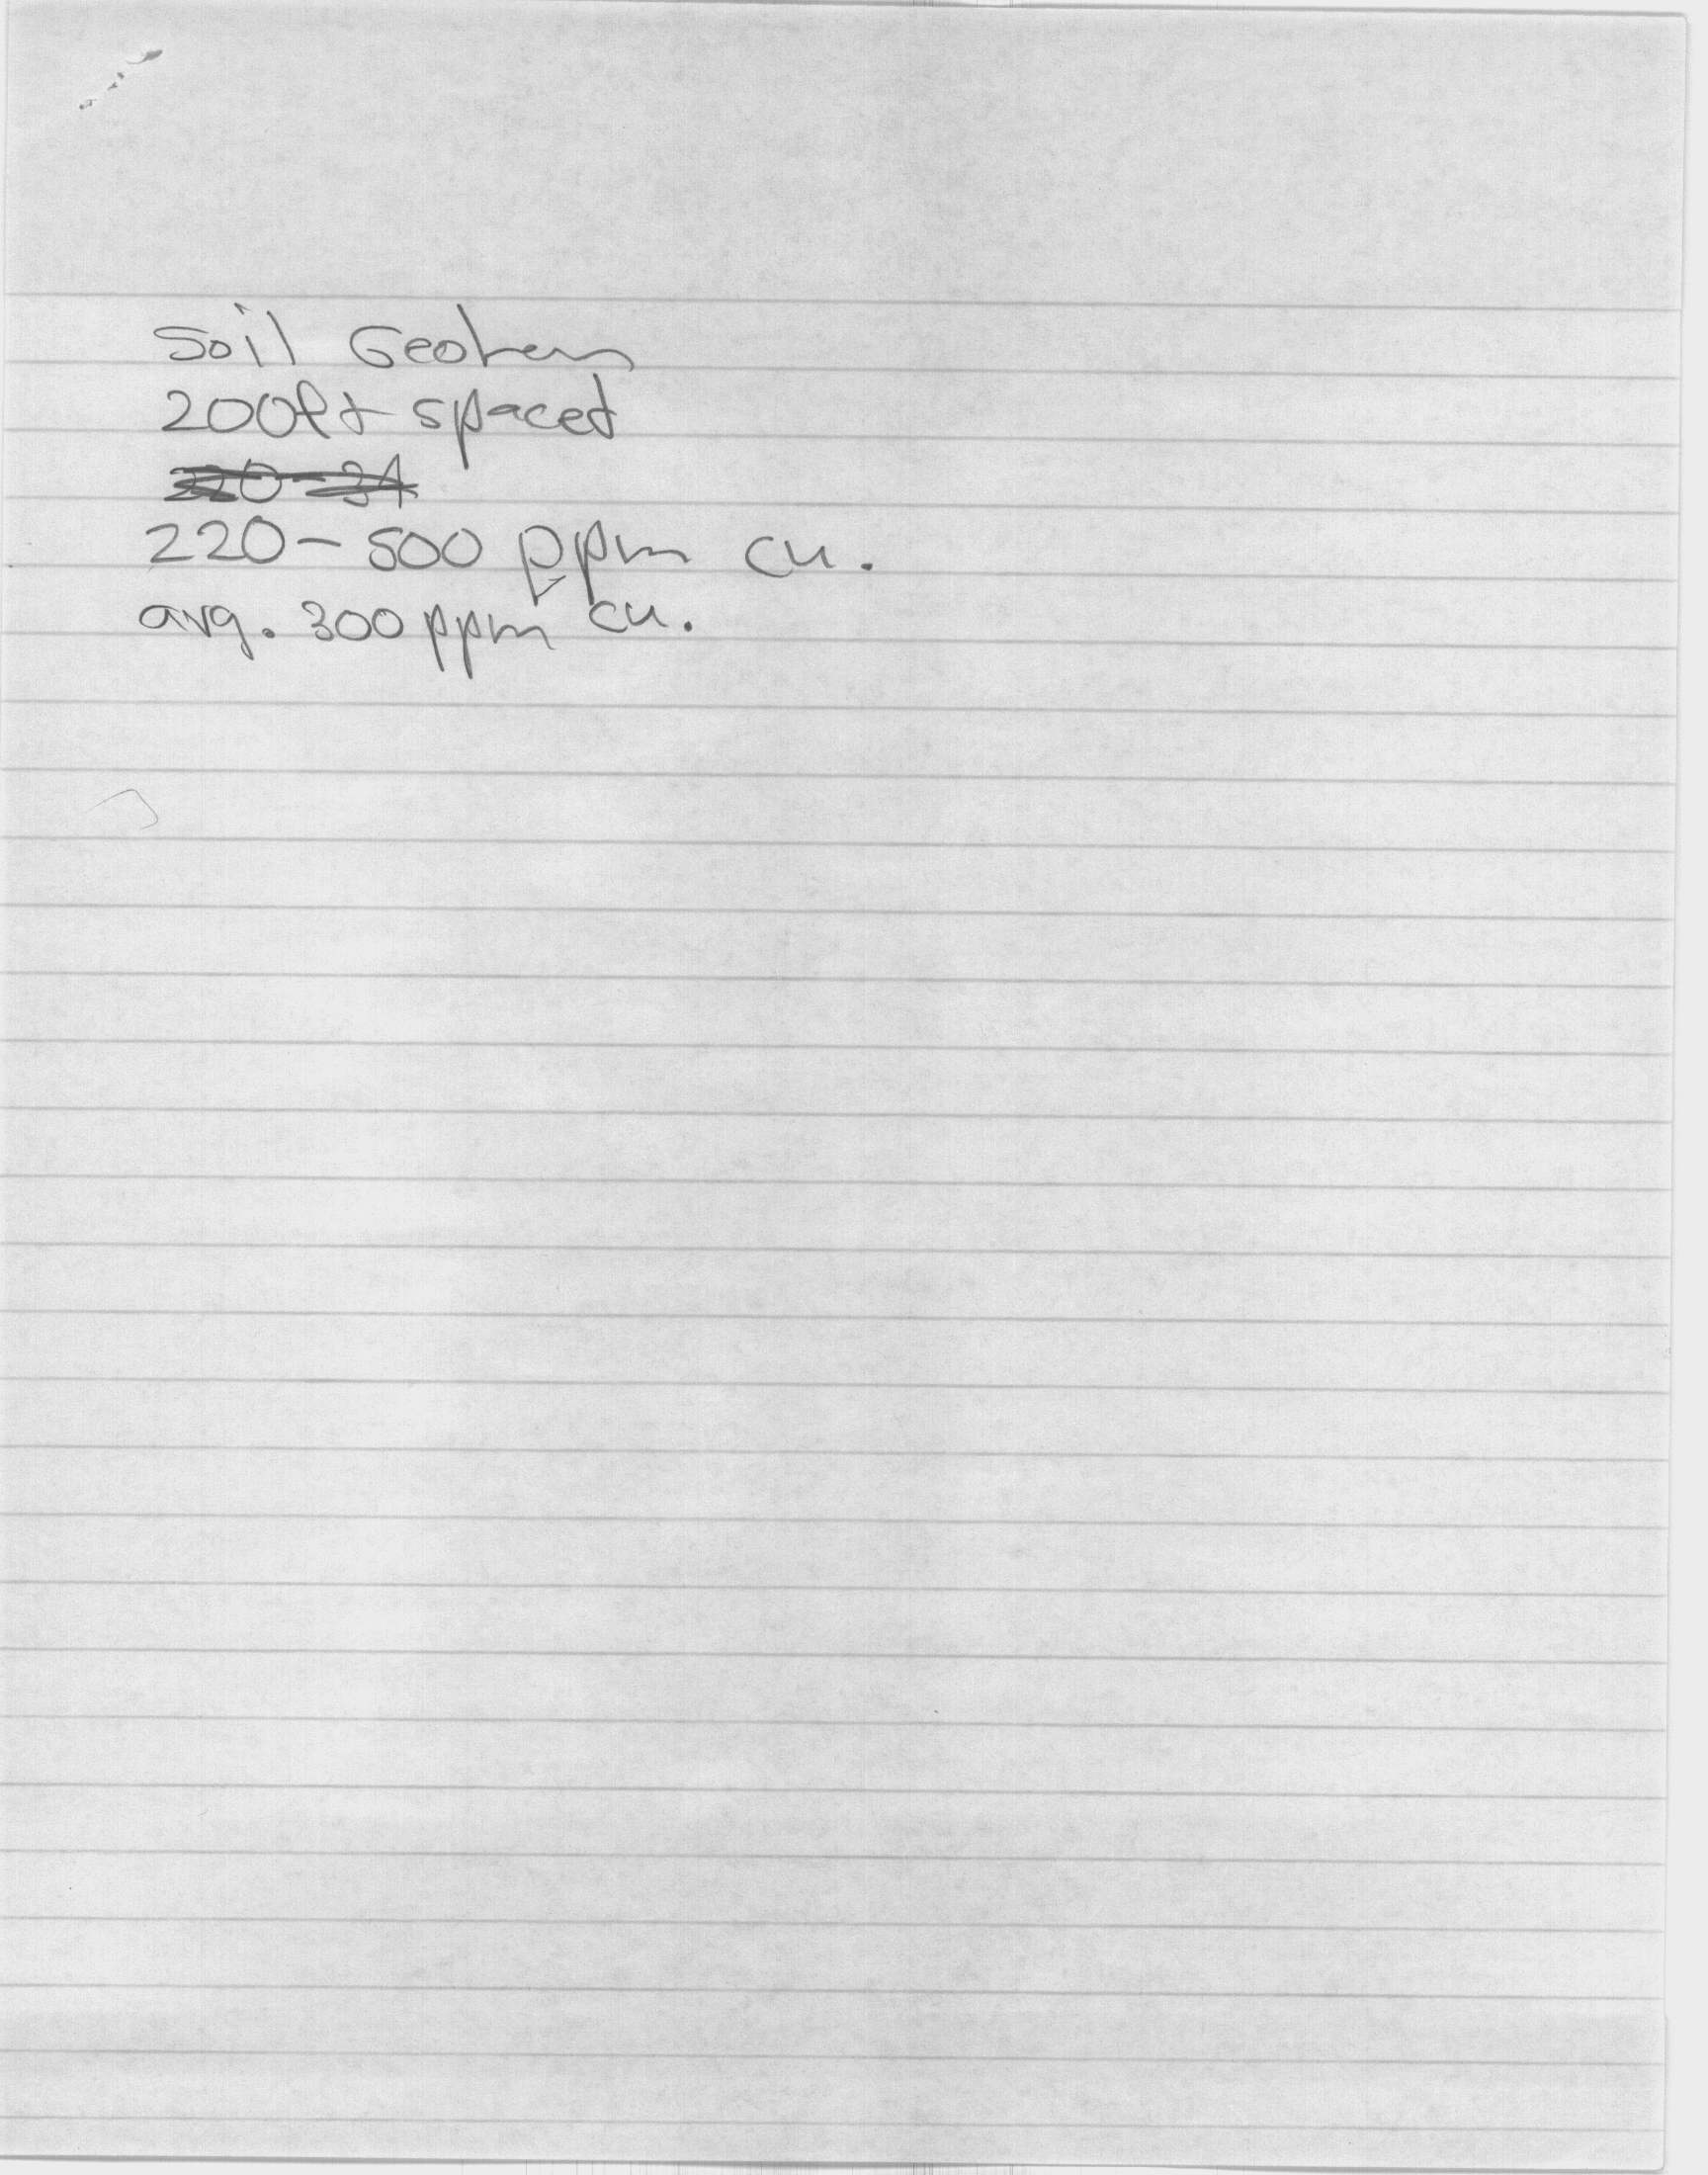 Soil Geochem
200ft spaced
220-34
220-500 ppm cu.
avg. 300 ppm cu.